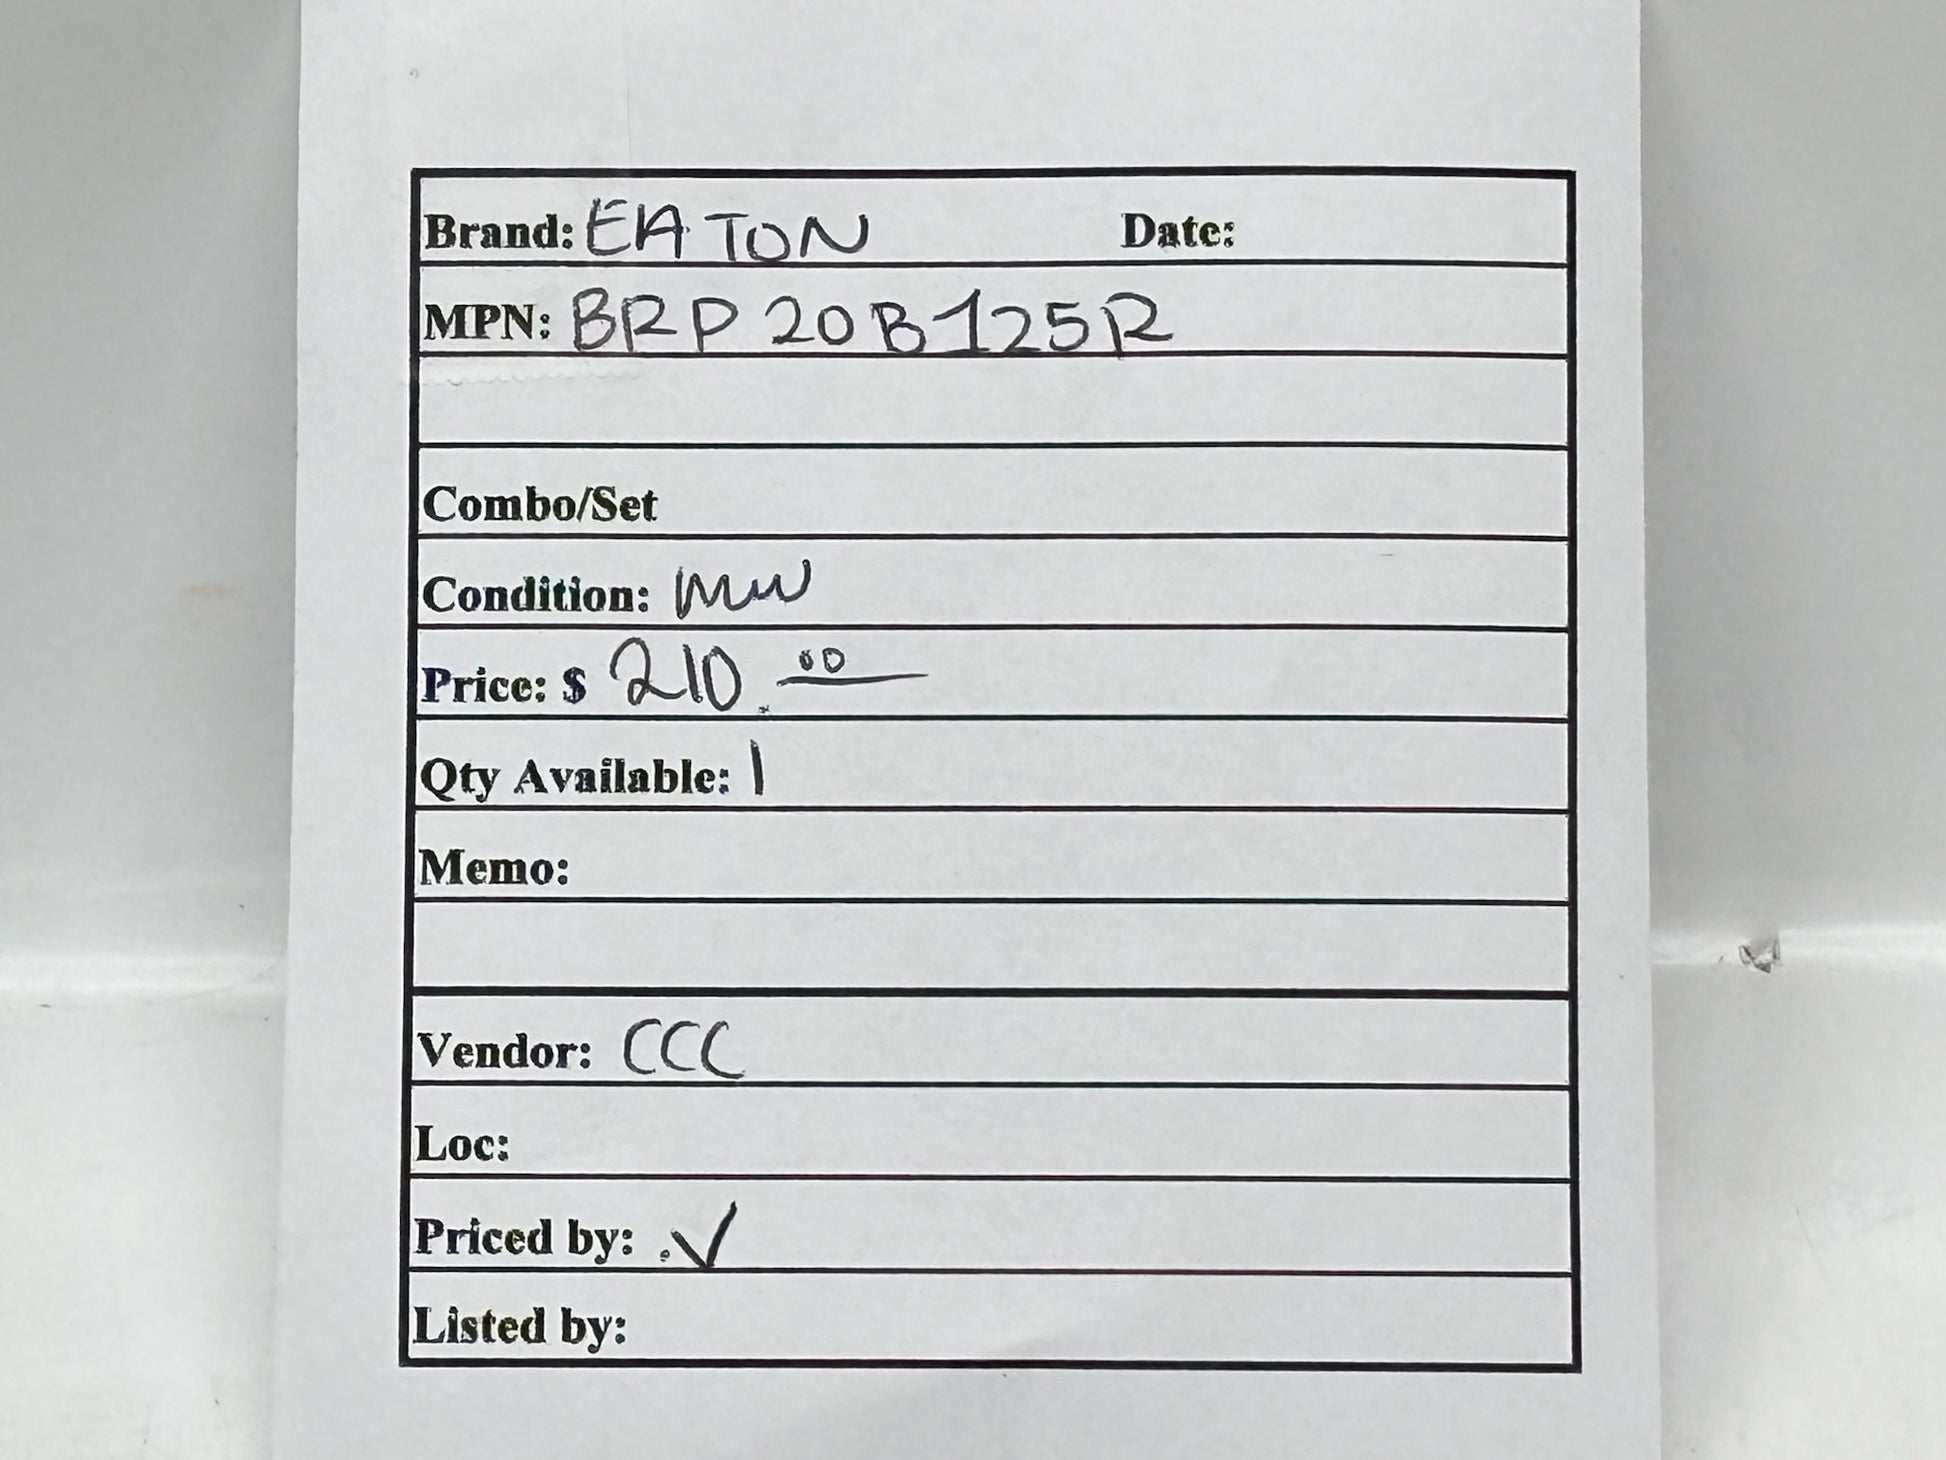 Brand: EATON Date:
MPN: BRP20B125R
Combo/Set
Condition:
Price: $ 210.00
Qty Available: 1
Memo:
Vendor: CCC
Loc:
Priced by: .✓
Listed by: